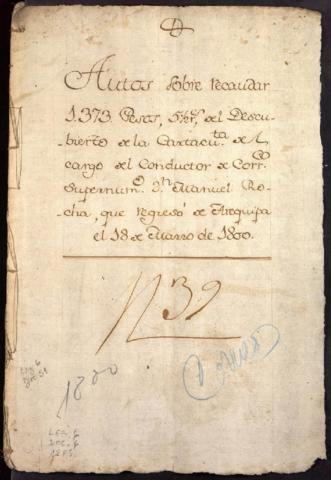 Autos sobre recaudar
1.373 Pesos, 5½ rs, del Descu-
-bierto de la Cartacu.ta de el
cargo del Conductor de Corr.os
Supernum.o Dn Manuel Ro-
cha, que regresó de Arequipa
el 18 de Marzo de 1800.
N 39
Correos
1800
Leg 6
Doc 51
LEG. 6
DOC.